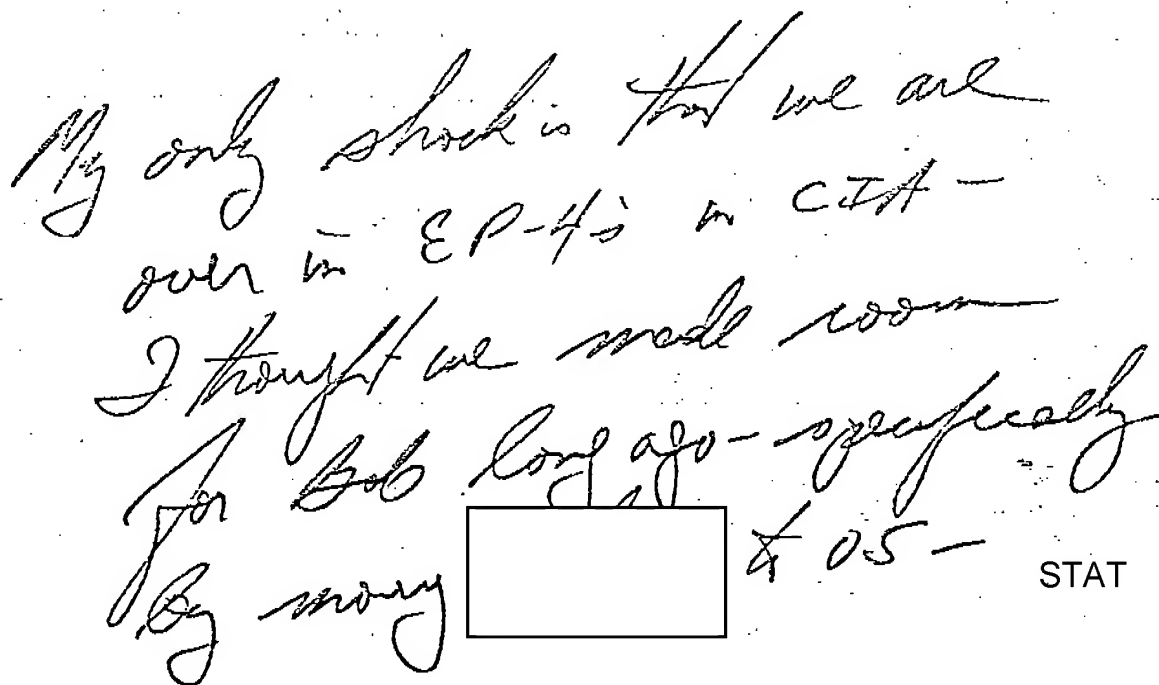 My only shock is that we are
over in EP-4's in CIA -
I thought we made room
for Bob long ago - specifically
By moving to OS -
STAT